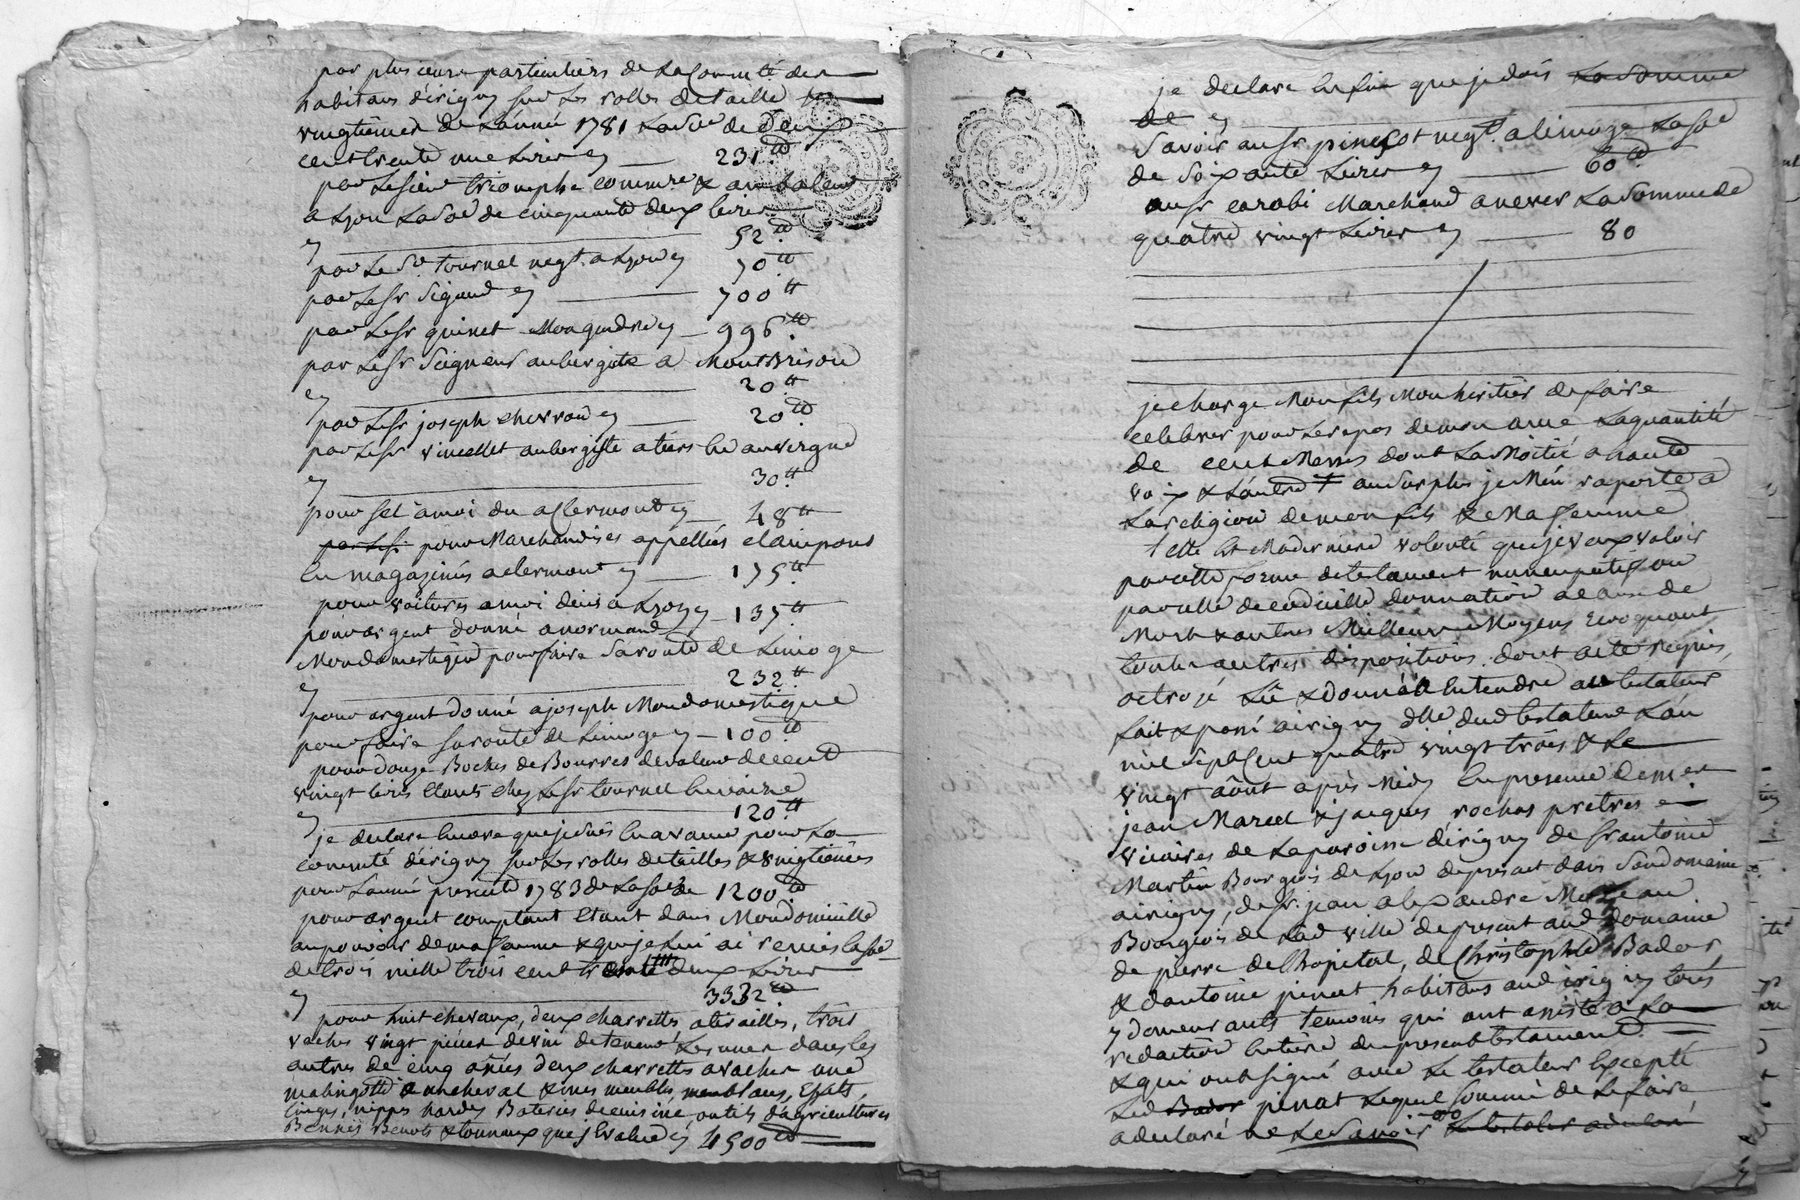 par plusieurs particuliers de la Com.té des
habitans d'irigny sur les rolles de taille &
vingtiemes de l'année 1781 la So.e de deux
cent trente une livres cy 231 ʰ
par le sieur triomphe commire & ambaleur
a Lyon la So.e de cinquante deux livres
cy 52 ʰ
par le Sr. tournel negt. a Lyon cy 70 ʰ
par le Sr Sigaud cy 700 ʰ
par le Sr guinet cy 996 ʰ
par le Sr Seigneur aubergiste a Montbrison
cy 20 ʰ
par le Sr joseph chevron cy 20 ʰ
par le Sr vincellet aubergiste a tiers en auvergne
cy 30 ʰ
pour sel a moi du a Clermont cy 48 ʰ
par le Sr. pour Marchandises appellées
en magazines a clermont cy 175 ʰ
pour voitures a moi deües a Lyon cy 135 ʰ
pour argent donné a normand
Mon domestique pour faire sa route de Limoge
cy 232 ʰ
pour argent donné a joseph Mon domestique
pour faire sa route de Limoge cy 100 ʰ
pour douze de Bourres de valeur de cent
vingt livres etants chez le Sr tournel
cy 120 ʰ
je declare encore que je suis en avance pour la
com.té d'irigny sur les rolles de tailles & vingtiemes
pour l'année presente 1783 de la So.e de 1200 ʰ
pour argent comptant etant dans Mon domicille
au pouvoir de ma femme & que je lui ai remis la So.e
de trois mille trois cent trente deux Livres
cy 3332 ʰ
pour huit chevaux, deux charrettes atelaillés, trois
vaches vingt pieces de vin de teneur les unes dans les
autres de cinq anées deux charrettes a vaches une
malingotte a un cheval & mes meubles, meublans, Effets,
linges, nippes hardes Bateries de cuisine outils d'agricultures
Bennes Benots & tonneaux que j'evalue cy 4500 ʰ
je declare enfin que je dois la Somme
de cy
Savoir au Sr pincot negt. a limoge la So.e
de Soixante Livres cy 60 ʰ
au Sr carobi Marchand a nevers la Somme de
quatre vingt Livres cy 80
je charge Mon fils Mon heritier de faire
celebrer pour le repos de mon ame la quantité
de cent Messes dont la Moitié a haute
voix & l'autre † au surplus je M'en raporte a
la religion de mon fils & de Ma femme
telle est Ma derniere volonté que je veux valoir
par cette forme de testament nuncupatif ou
par celle de codicille donnation a cause de
Mort & autres Meilleurs Moyens revoquant
toutes autres dispositions. dont acte requis,
octroyé lû & donné a entendre au testateur
fait & passé a irigny dlle dud testateur L'an
mil Sept cent quatre vingt trois & le
vingt aôut après Midy en presence de mes
jean Marcel & jacques rochas pretres
vicaires de la paroisse d'irigny de Sr antoine
Martin Bourgeois de Lyon de present dans Son domaine
a irigny, de Sr. jean alexandre
Bourgeois de lad ville de present aud domaine
de pierre de l'hopital, de Christophle Bador,
& d'antoine pinat habitans aud irigny tous
y demeurants temoins qui ont assisté a la
redaction entiere du present testament
& qui ont signé avec le testateur Excepté
led Bador pinat lequel Sommé de le faire
a declaré ne le Savoir le testateur a declaré